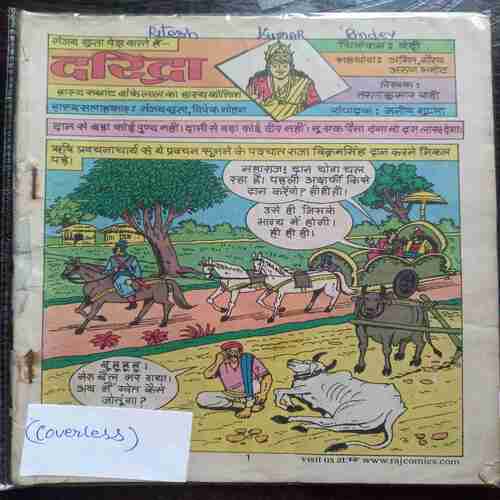 Ritesh Kumar Pandey
संजय गुप्ता पेश करते हैं-
दरिद्रा
हास्य सम्राट बांकेलाल का हास्य कॉमिक
हास्य सलाहकार: संजय गुप्ता, विवेक मोहन
चित्रांकन: बेदी
सहयोग:
लेखक:
तरुण कुमार वाही
संपादक: मनीष गुप्ता
दान से बड़ा कोई पुण्य नहीं। दानी से बड़ा कोई वीर नहीं। तू एक पैसा देगा वो दस लाख देगा।
ऋषि प्रवचनाचार्य से ये प्रवचन सुनने के पश्चात राजा विक्रमसिंह दान करने निकल
पड़े।
महाराज! दान योग चल
रहा है। पहली अशर्फी किसे
दान करेंगे? ही ही ही।
उसे ही जिसके
भाग्य में होगी।
ही ही ही।
मेरा बैल मर गया।
अब मैं खेत कैसे
जोतूंगा?
(Coverless)
1
visit us at: www.rajcomics.com